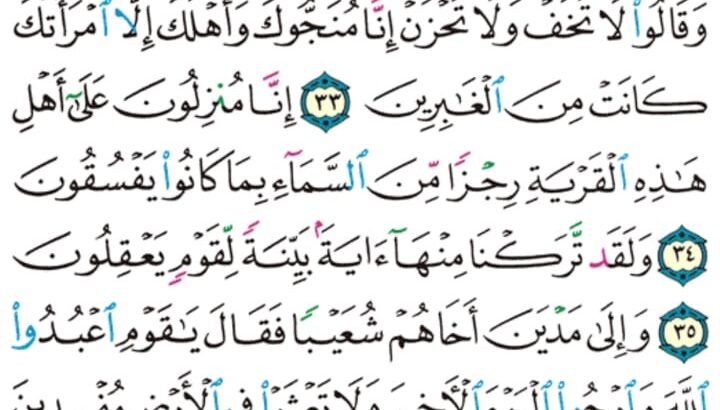 وَقَالُوا۟ لَا تَخَفْ وَلَا تَحْزَنْ إِنَّا مُنَجُّوكَ وَأَهْلَكَ إِلَّا ٱمْرَأَتَكَ
كَانَتْ مِنَ ٱلْغَٰبِرِينَ ٣٣ إِنَّا مُنزِلُونَ عَلَىٰٓ أَهْلِ
هَٰذِهِ ٱلْقَرْيَةِ رِجْزًا مِّنَ ٱلسَّمَآءِ بِمَا كَانُوا۟ يَفْسُقُونَ
٣٤ وَلَقَد تَّرَكْنَا مِنْهَآ ءَايَةًۢ بَيِّنَةً لِّقَوْمٍ يَعْقِلُونَ
٣٥ وَإِلَىٰ مَدْيَنَ أَخَاهُمْ شُعَيْبًا فَقَالَ يَٰقَوْمِ ٱعْبُدُوا۟
ٱللَّهَ وَٱرْجُوا۟ ٱلْيَوْمَ ٱلْأَخِرَ وَلَا تَعْثَوْا۟ فِى ٱلْأَرْضِ مُفْسِدِينَ